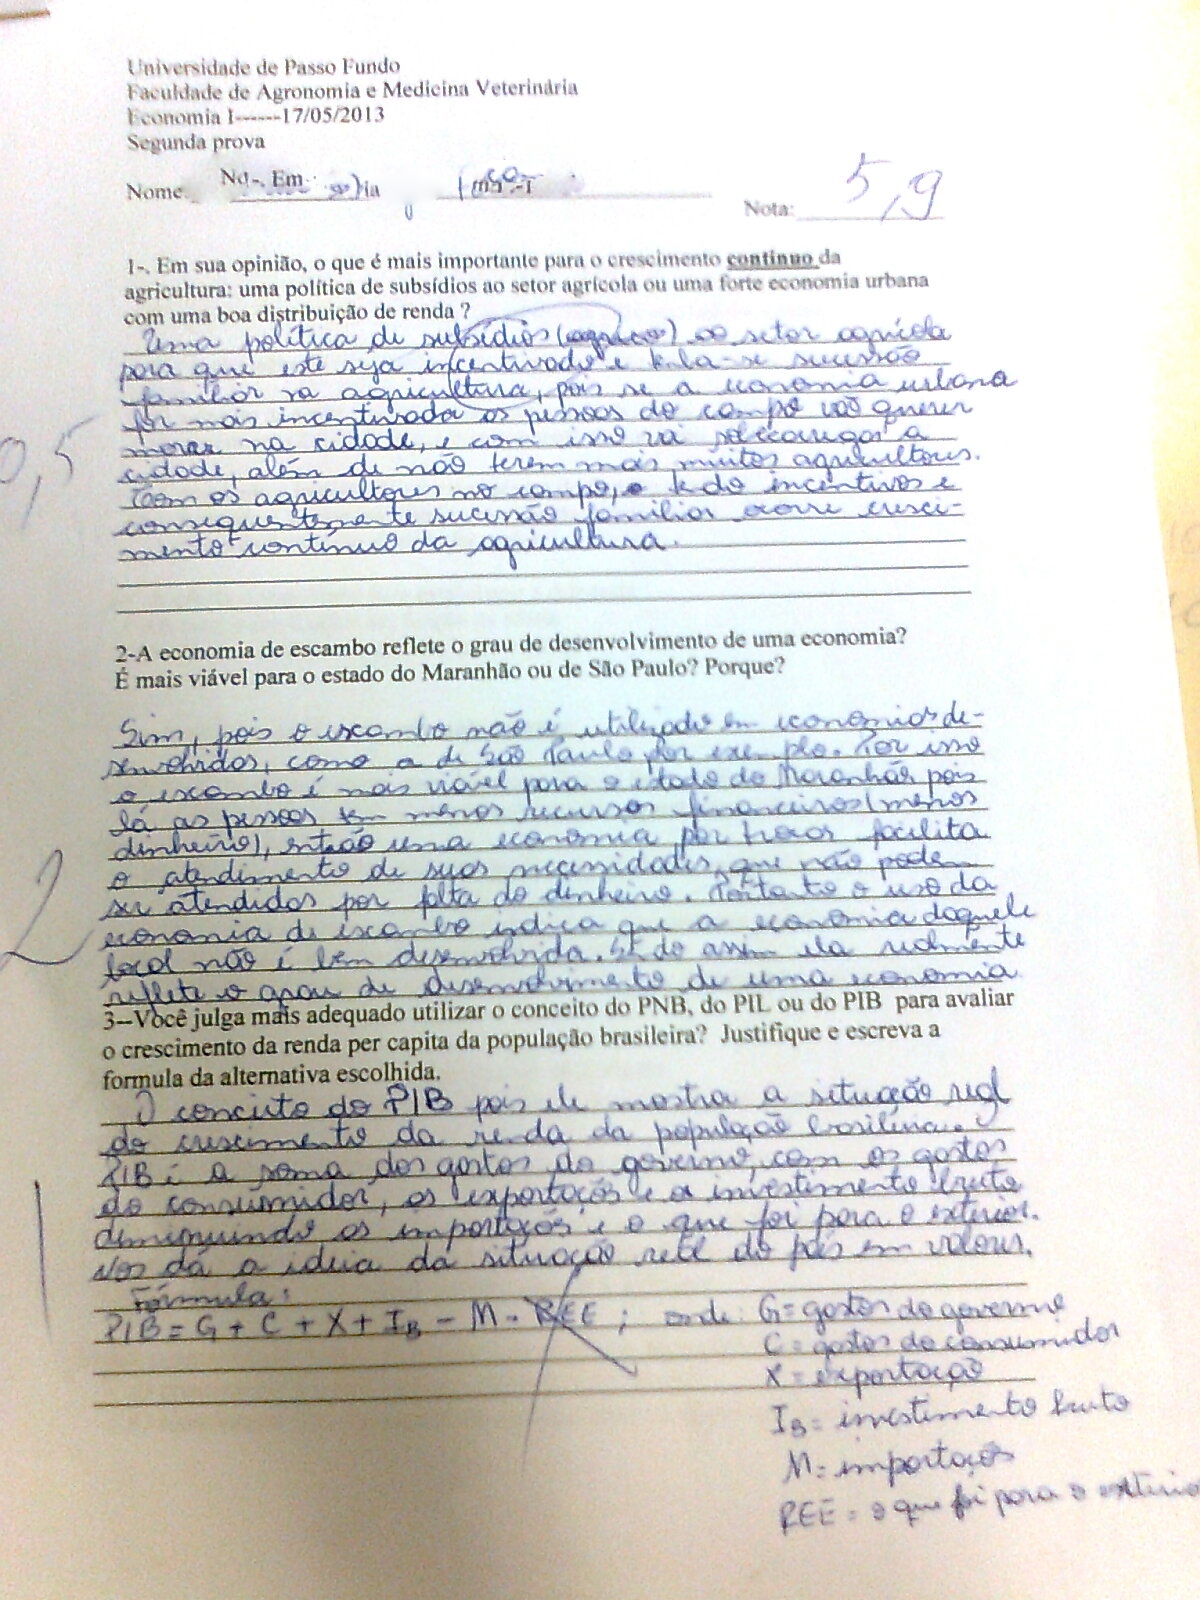 Universidade de Passo Fundo
Faculdade de Agronomia e Medicina Veterinária
Economia I------17/05/2013
Segunda prova
Nome.
Nota: 5,9
1-. Em sua opinião, o que é mais importante para o crescimento contínuo da
agricultura: uma política de subsídios ao setor agrícola ou uma forte economia urbana
com uma boa distribuição de renda ?
Uma política de subsídios ao setor agrícola
para que este seja incentivado e tenha-se sucessão
familiar na agricultura, pois se a economia urbana
for mais incentivada as pessoas do campo vão querer
morar na cidade, e com isso vai sobrecarregar a
cidade, além de não terem mais muitos agricultores.
Com os agricultores no campo, tendo incentivos e
consequentemente sucessão familiar ocorre cresci-
mento contínuo da agricultura.
0,5
2-A economia de escambo reflete o grau de desenvolvimento de uma economia?
É mais viável para o estado do Maranhão ou de São Paulo? Porque?
Sim, pois o escambo não é utilizado em economias de-
senvolvidas, como a de São Paulo, por exemplo. Por isso
o escambo é mais viável para o estado do Maranhão pois
lá as pessoas tem menos recursos financeiros (menos
dinheiro), então uma economia por trocas facilita
o atendimento de suas necessidades, que não podem
ser atendidas por falta do dinheiro. Portanto o uso da
economia de escambo indica que a economia daquele
local não é bem desenvolvida. Sendo assim ela realmente
reflete o grau de desenvolvimento de uma economia
2
3--Você julga mais adequado utilizar o conceito do PNB, do PIL ou do PIB para avaliar
o crescimento da renda per capita da população brasileira? Justifique e escreva a
formula da alternativa escolhida.
O conceito do PIB pois ele mostra a situação real
do crescimento da renda da população brasileira. O
PIB é a soma dos gastos do governo, com os gastos
do consumidor, as exportações e o investimento bruto
diminuindo as importações e o que foi para o exterior.
Nos dá a ideia da situação real do país em valores.
1
Fórmula:
PIB = G + C + X + IB - M - REE ; onde: G = gastos do governo
C = gastos do consumidor
X = exportação
IB = investimento bruto
M = importações
REE = o que foi para o exterio